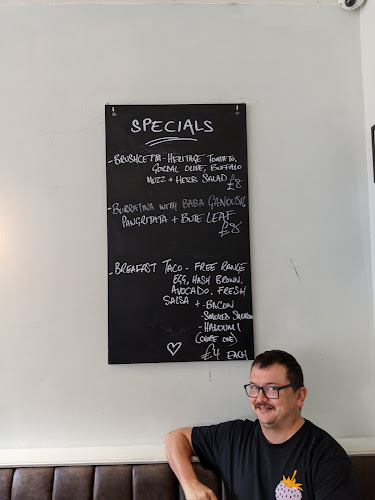 SPECIALS
- BRUSHCETTA - HERITAGE TOMATO,
GORDAL OLIVE, BUFFALO
MOZZ + HERB SALAD £8
- BURRATINA WITH BABA GANOUSH,
PANGRITATA + BUTE LEAF
£8
- BREAFAST TACO - FREE RANGE
EGG, HASH BROWN,
AVOCADO, FRESH
SALSA + - BACON
- SMOKED SALMON
- HALOUMI
(CHOOSE ONE)
£4 EACH